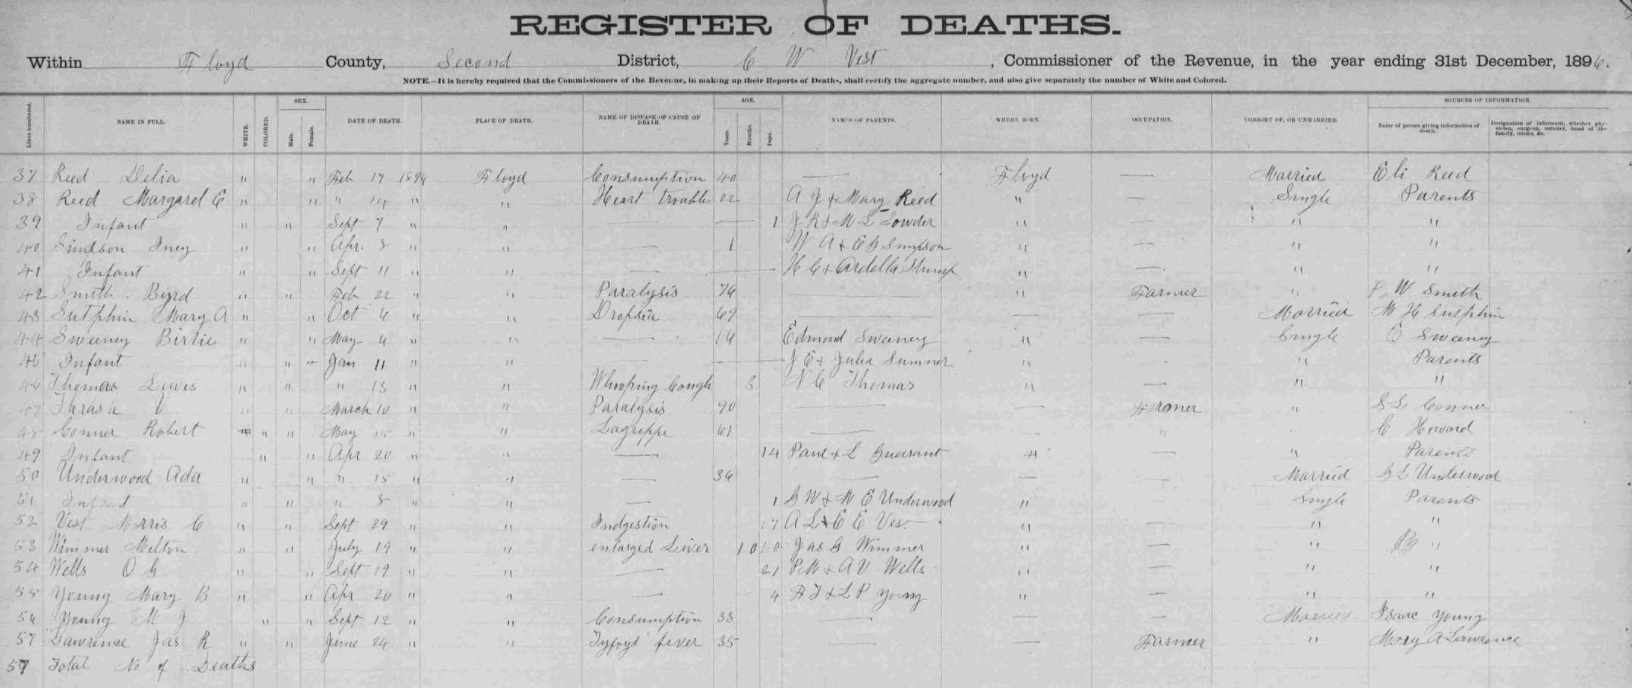 REGISTER OF DEATHS.
Within Floyd County, Second District, C W Vest, Commissioner of the Revenue, in the year ending 31st December, 1896.
NOTE.—It is hereby required that the Commissioners of the Revenue, in making up their Reports of Deaths, shall certify the aggregate number, and also give separately the number of White and Colored.
SEX. AGE. SOURCES OF INFORMATION.
Lines numbered. NAME IN FULL. WHITE. COLORED. Male. Female. DATE OF DEATH. PLACE OF DEATH. NAME OF DISEASE OR CAUSE OF DEATH. Years. Months. Days. NAMES OF PARENTS. WHERE BORN. OCCUPATION. CONSORT OF, OR UNMARRIED. Name of person giving information of death. Designation of informant, whether physician, surgeon, coroner, head of family, friend, &c.
37 Reed Delia " " Feb 17 189 Floyd Consumption 40 — Floyd — Married Eli Reed
38 Reed Margaret E " " " 14 " " Heart trouble 22 A J & Mary Reed " — Single Parents
39 Infant " " Sept 7 " " — 1 J R & M L Lowder " — " "
40 Simpson " " Apr. 8 " " — 1 W A & Simpson " — " "
41 Infant " " Sept 11 " " — H C & Ardella " — " "
42 Smith Byrd " " Feb 22 " " Paralysis 74 — " Farmer " W Smith
43 Sutphin Mary A " " Oct 6 " " 69 — " — Married M H Sutphin
44 Sweeney Birtie " " May 4 " " — 14 Edmond Sweeney " — Single E Sweeney
45 Infant " " Jan 11 " " — J E & Julia Sumner " — " Parents
46 Thomas Lewis " " " 13 " " Whooping Cough 8 N C Thomas " — " "
47 Thrash V " " March 10 " " Paralysis 90 — — Farmer " Conner
48 Conner Robert " " May 15 " " Lagrippe 61 — — " C Howard
49 Infant " " Apr 20 " " — 14 Paul & L Guerrant " — " Parents
50 Underwood Ada " " " 15 " " — 36 — Married Underwood
51 Infant " " " 8 " " — 1 G W & M E Underwood " — Single Parents
52 Vest Morris C " " Sept 29 " " Indgestion 17 A L & C E Vest " — " "
53 Wimmer Milton " " July 19 " " enlarged Liver 10 10 Jas Wimmer " — " "
54 Wells O G " " Sept 19 " " — 21 P M & A V Wells " — " "
55 Young Mary B " " Apr 20 " " — 4 & L P Young " — " "
56 Young M J " " Sept 12 " " Consumption 33 — — — Married Isaac Young
57 Lawrence Jas R " " June 24 " " Tyfoyd fever 35 — Farmer " Mary A Lawrence
57 Total No of Deaths